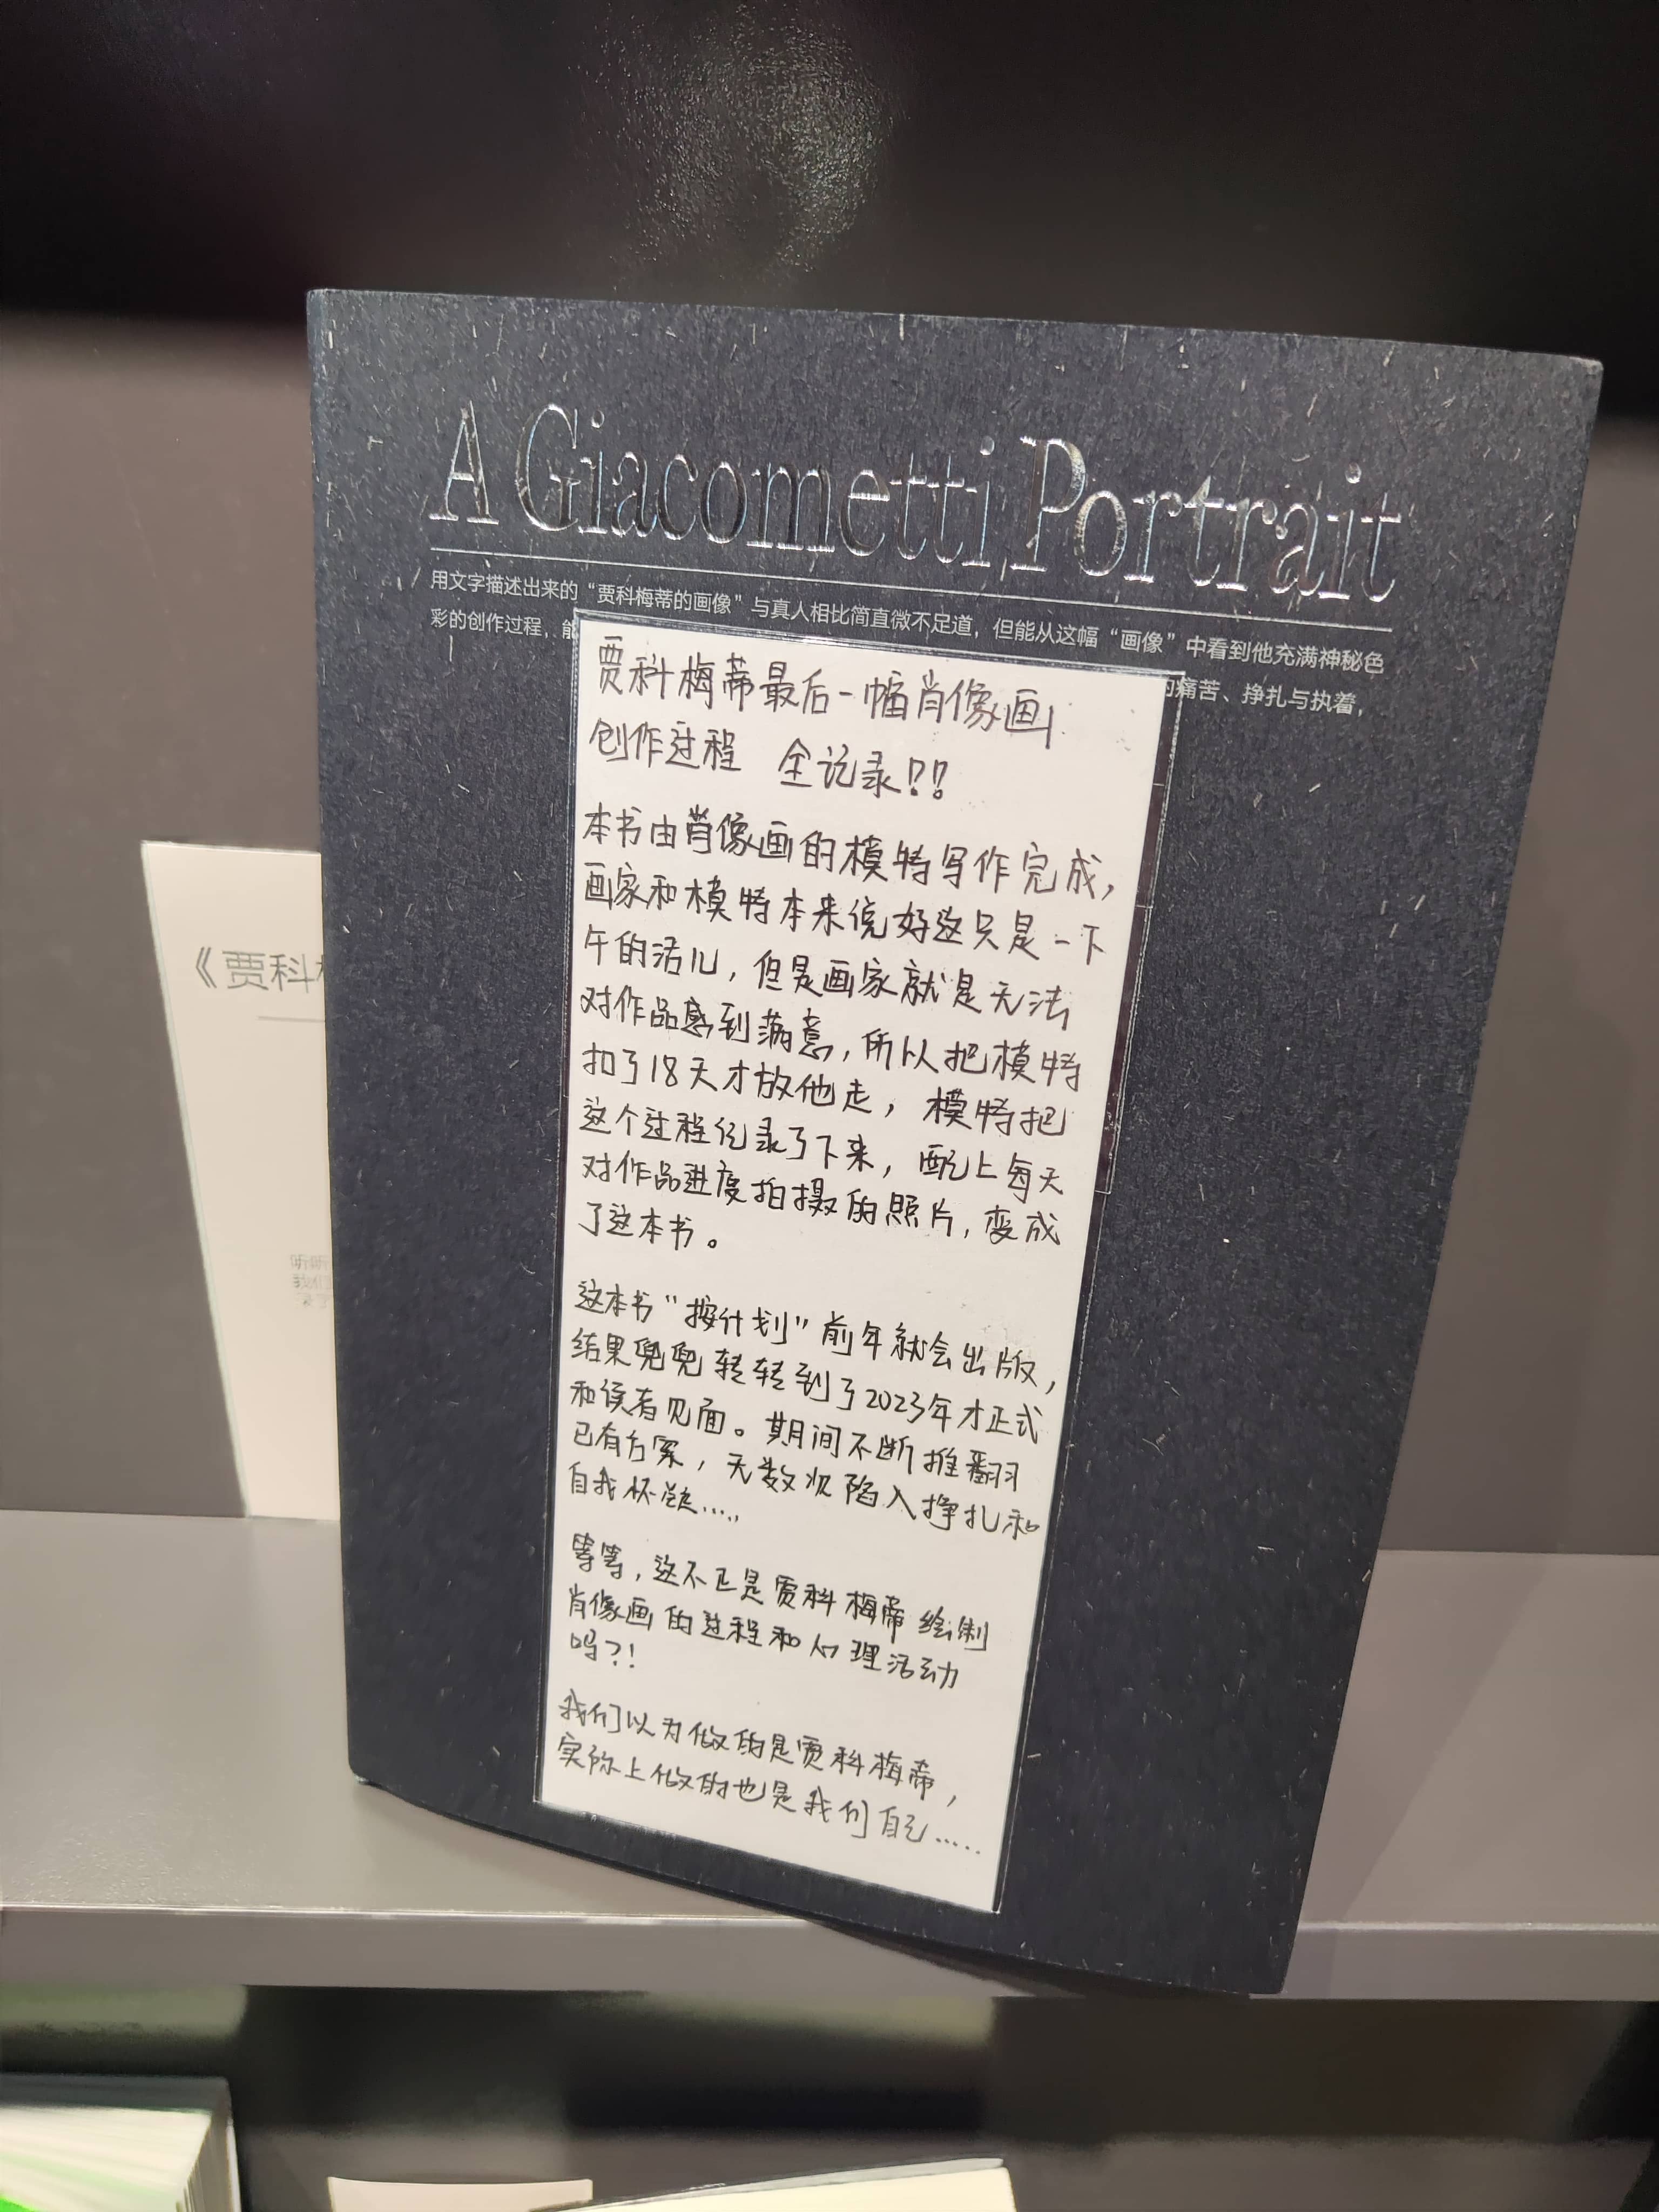 A Giacometti Portrait
用文字描述出来的“贾科梅蒂的画像”与真人相比简直微不足道，但能从这幅“画像”中看到他充满神秘色
彩的创作过程，能
的痛苦、挣扎与执着，
贾科梅蒂最后一幅肖像画
创作过程 全记录!!
本书由肖像画的模特写作完成，
画家和模特本来说好这只是一下
午的活儿，但是画家就是无法
对作品感到满意，所以把模特
扣了18天才放他走，模特把
这个过程记录了下来，配上每天
对作品进度拍摄的照片，变成
了这本书。
这本书“按计划”前年就会出版，
结果兜兜转转到了2023年才正式
和读者见面。期间不断推翻
已有方案，无数次陷入挣扎和
自我怀疑.....
等等，这不正是贾科梅蒂绘制
肖像画的过程和心理活动
吗?!
我们以为做的是贾科梅蒂，
实际上做的也是我们自己.....
《贾科
听听
我们